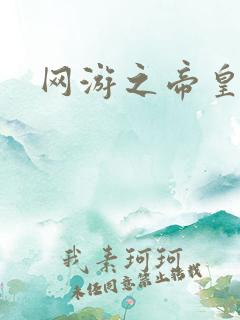 网游之帝皇
我素珂珂
未经同意禁止转载